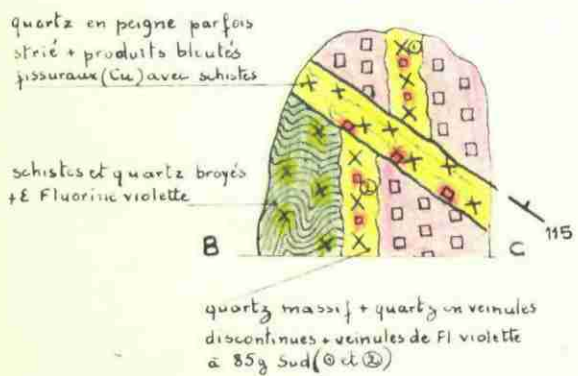 quartz en peigne parfois
strié + produits bleutés
fissuraux (Cu) avec schistes
①
schistes et quartz broyés
+ ε Fluorine violette
②
B
C
115
quartz massif + quartz en veinules
discontinues + veinules de Fl violette
à 85g Sud (① et ②)